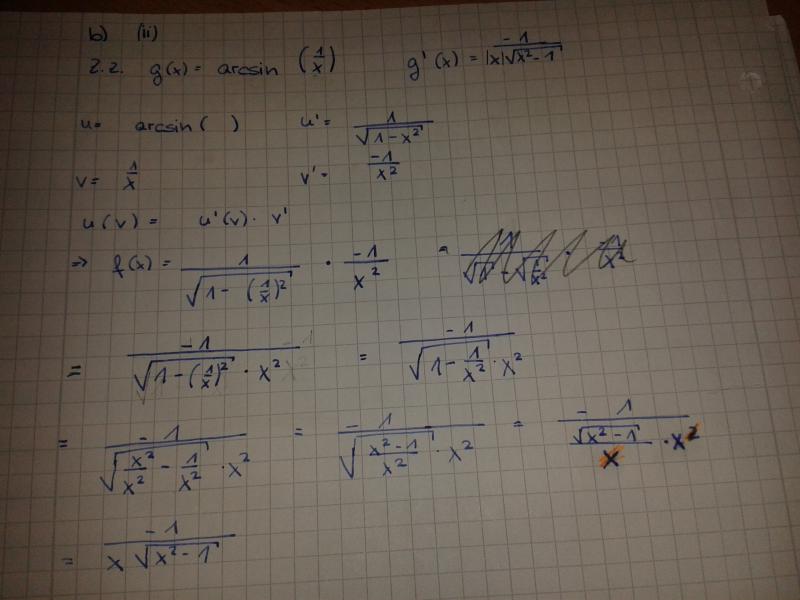 b) (ii)
z.z. g(x) = arcsin (1/x) g'(x) = -1/(|x|√(x²-1))
u = arcsin( ) u' = 1/√(1-x²)
v = 1/x v' = -1/x²
u(v) = u'(v) · v'
⇒ f(x) = 1/√(1-(1/x)²) · -1/x² =
= -1/(√(1-(1/x)²) · x²) = -1/(√(1-1/x²) · x²)
= -1/(√(x²/x² - 1/x²) · x²) = -1/(√((x²-1)/x²) · x²) = -1/(√(x²-1)/x · x²)
= -1/(x √(x²-1))